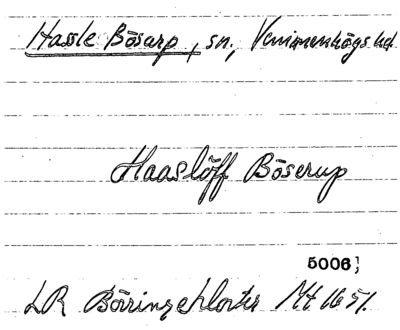 Hassle Bösarp, sn, Vemmenhögs hd
Haaslöff Böserup
5006;
LR Börringekloster Mt 1651.